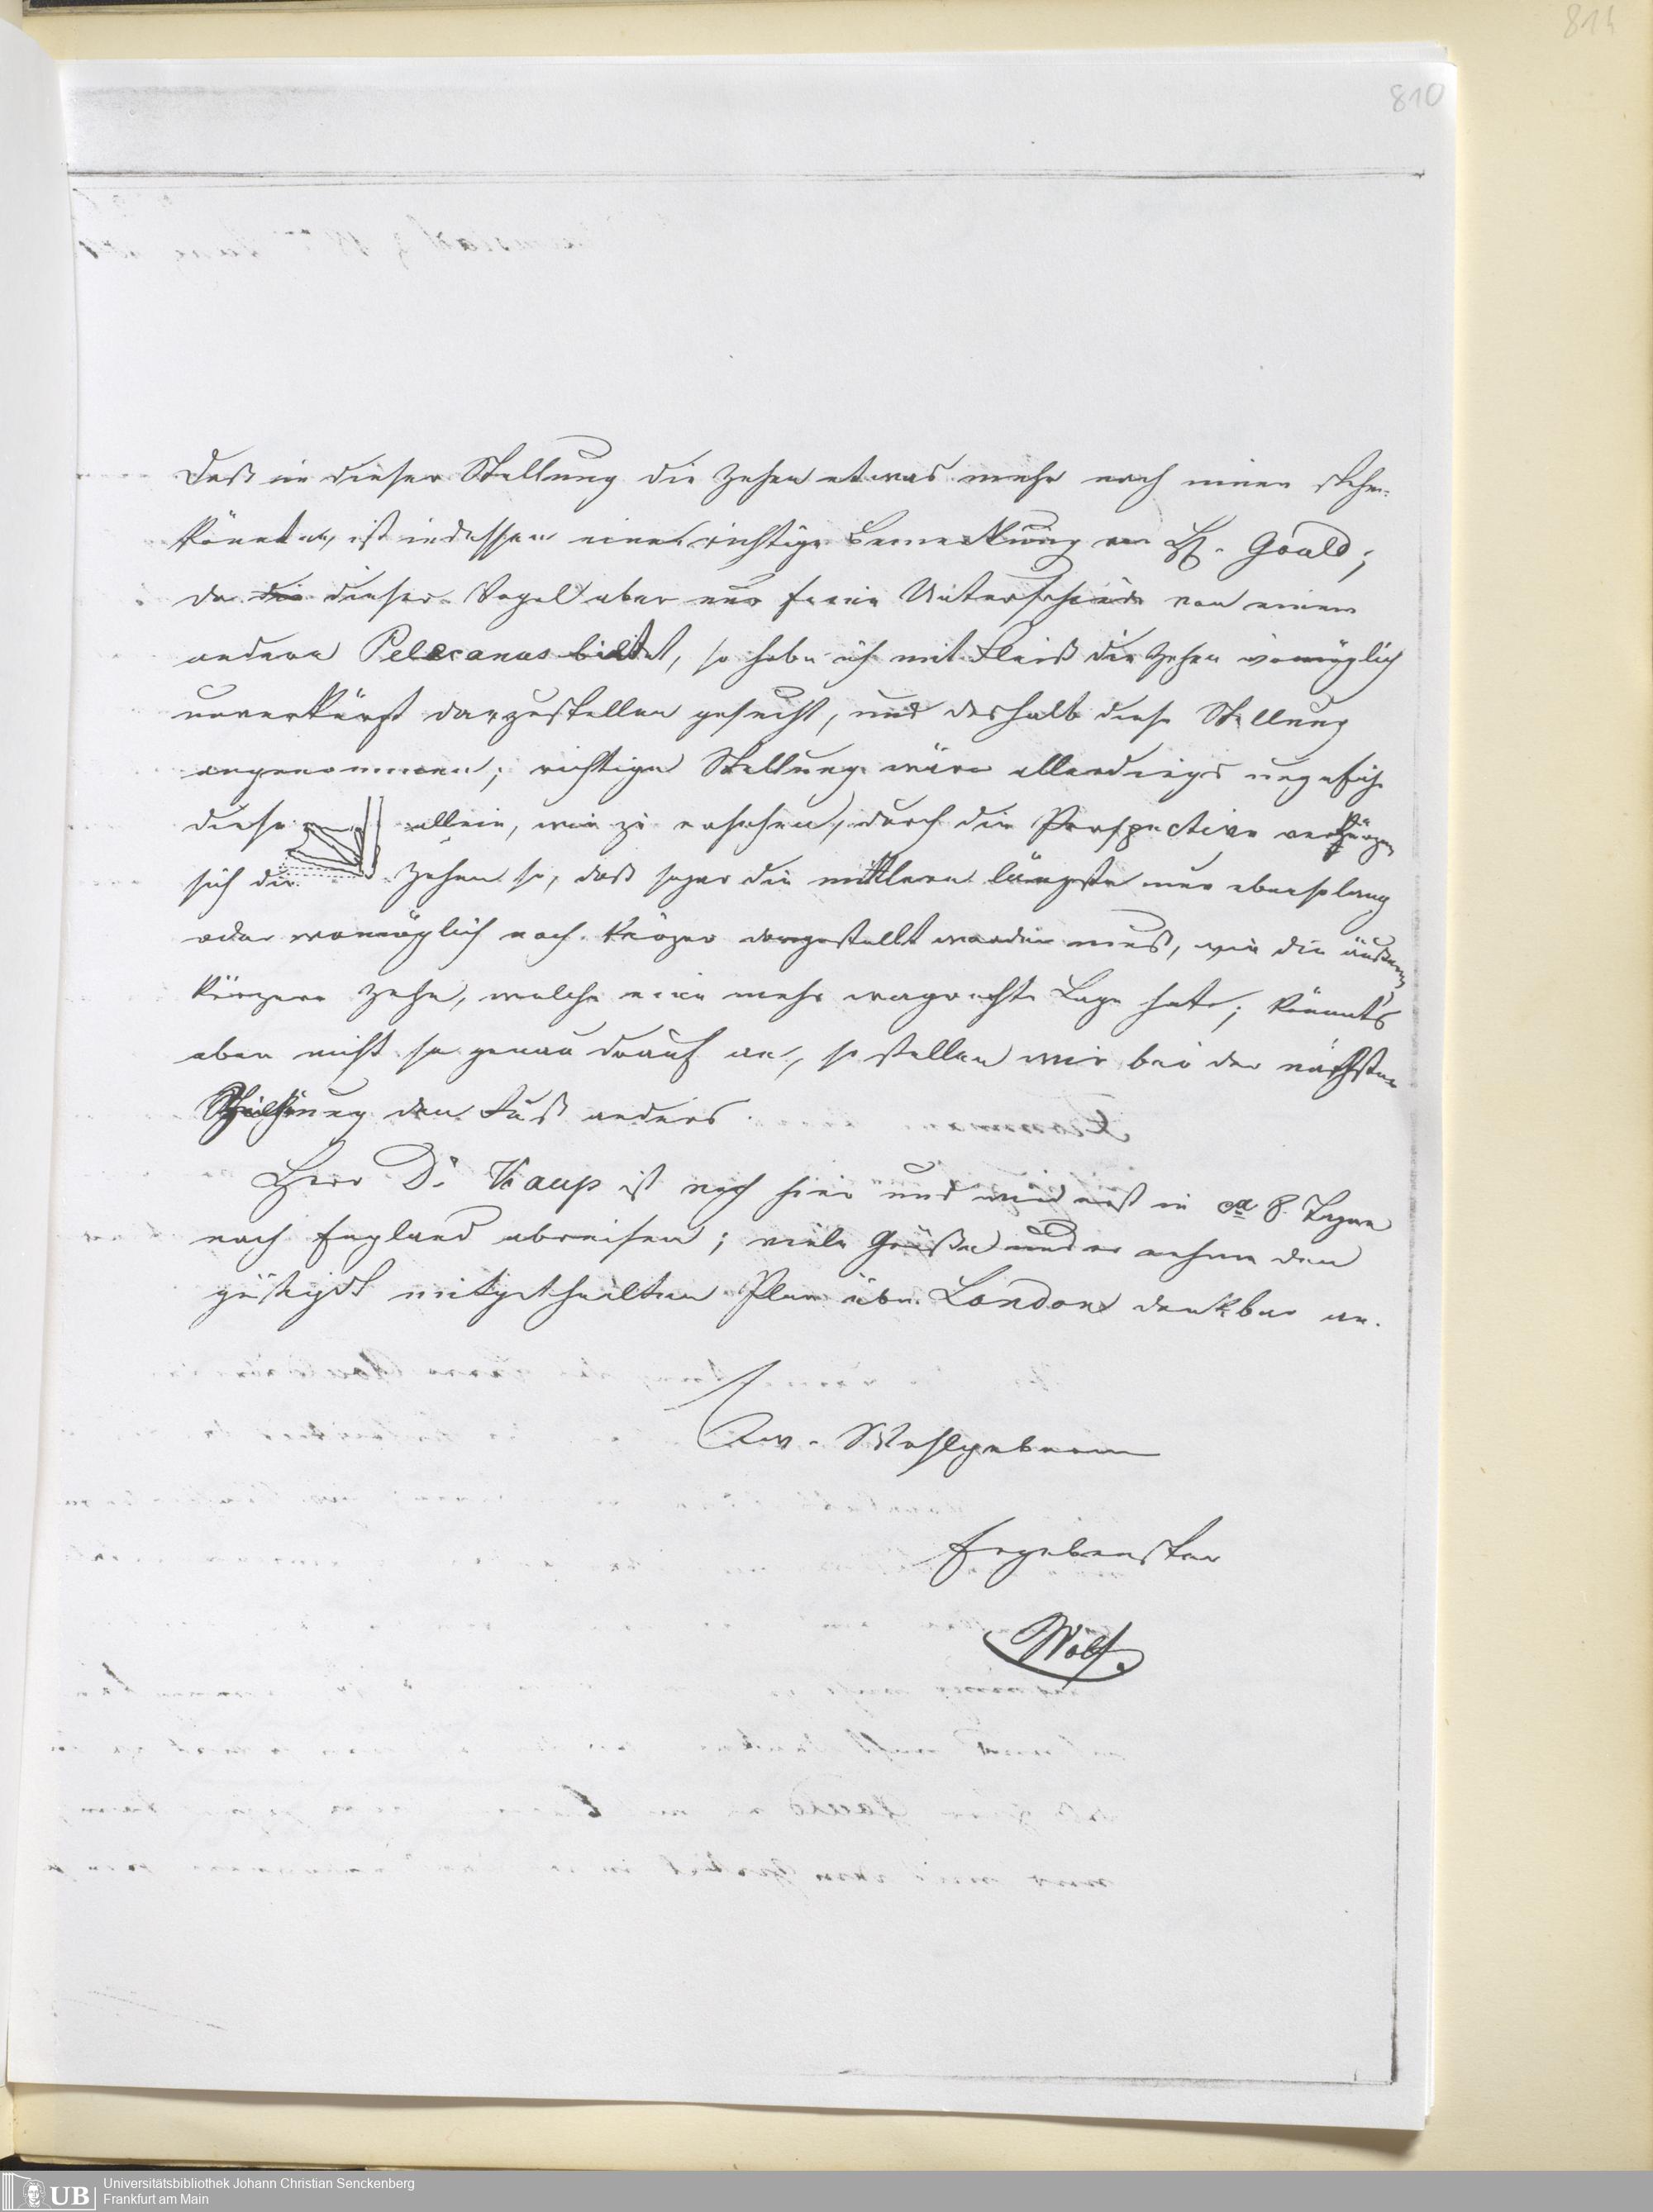 814
810
Daß in dieser Stellung die Zehen etwas mehr nach innen stehn
könnten, ist indessen eine richtige Bemerkung von H. Gould;
da die dieser Vogel aber nur Unterschiede von einem
andern Pelecanus bildet, so habe ich mit Fleiß die Zehen womöglich
unverkürzt darzustellen gesucht, und deshalb diese Stellung
angenommen; richtige Stellung wäre allerdings ungefähr
diese allein, wie zu ersehen, durch die Perspective verkürzen
sich die Zehen so, daß sogar die mittlere längste nur ebenso lang
oder womöglich noch kürzer dargestellt werden muß, wie die äußere
kürzere Zehe, welche eine mehr wagrechte Lage hat; kömmts
aber nicht so genau drauf an, so stellen wir bei der nächsten
den Fuß anders.
Herr Dr. Kaup ist noch hier und wird erst in ca 8 Tagen
nach England abreisen; viele Grüße und er nehme den
gütigst mitgetheilten Plan über London dankbar an.
Ew. Wohlgeboren
Ergebenster
Wolf.
UB
Universitätsbibliothek Johann Christian Senckenberg
Frankfurt am Main